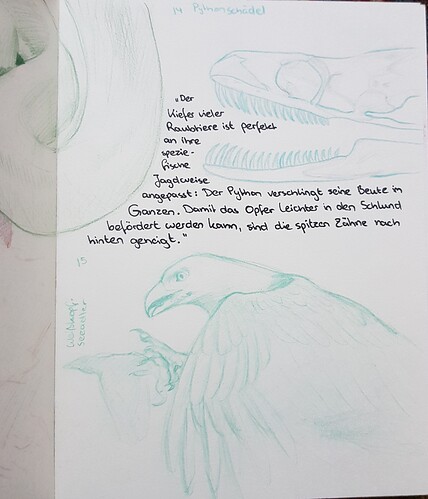 14 Pythonschädel
"Der
Kiefer vieler
Raubtiere ist perfekt
an ihre
spezie-
fische
Jagdweise
angepasst: Der Python verschlingt seine Beute im
Ganzen. Damit das Opfer leichter in den Schlund
befördert werden kann, sind die spitzen Zähne nach
hinten geneigt."
15
Weißkopf-
seeadler